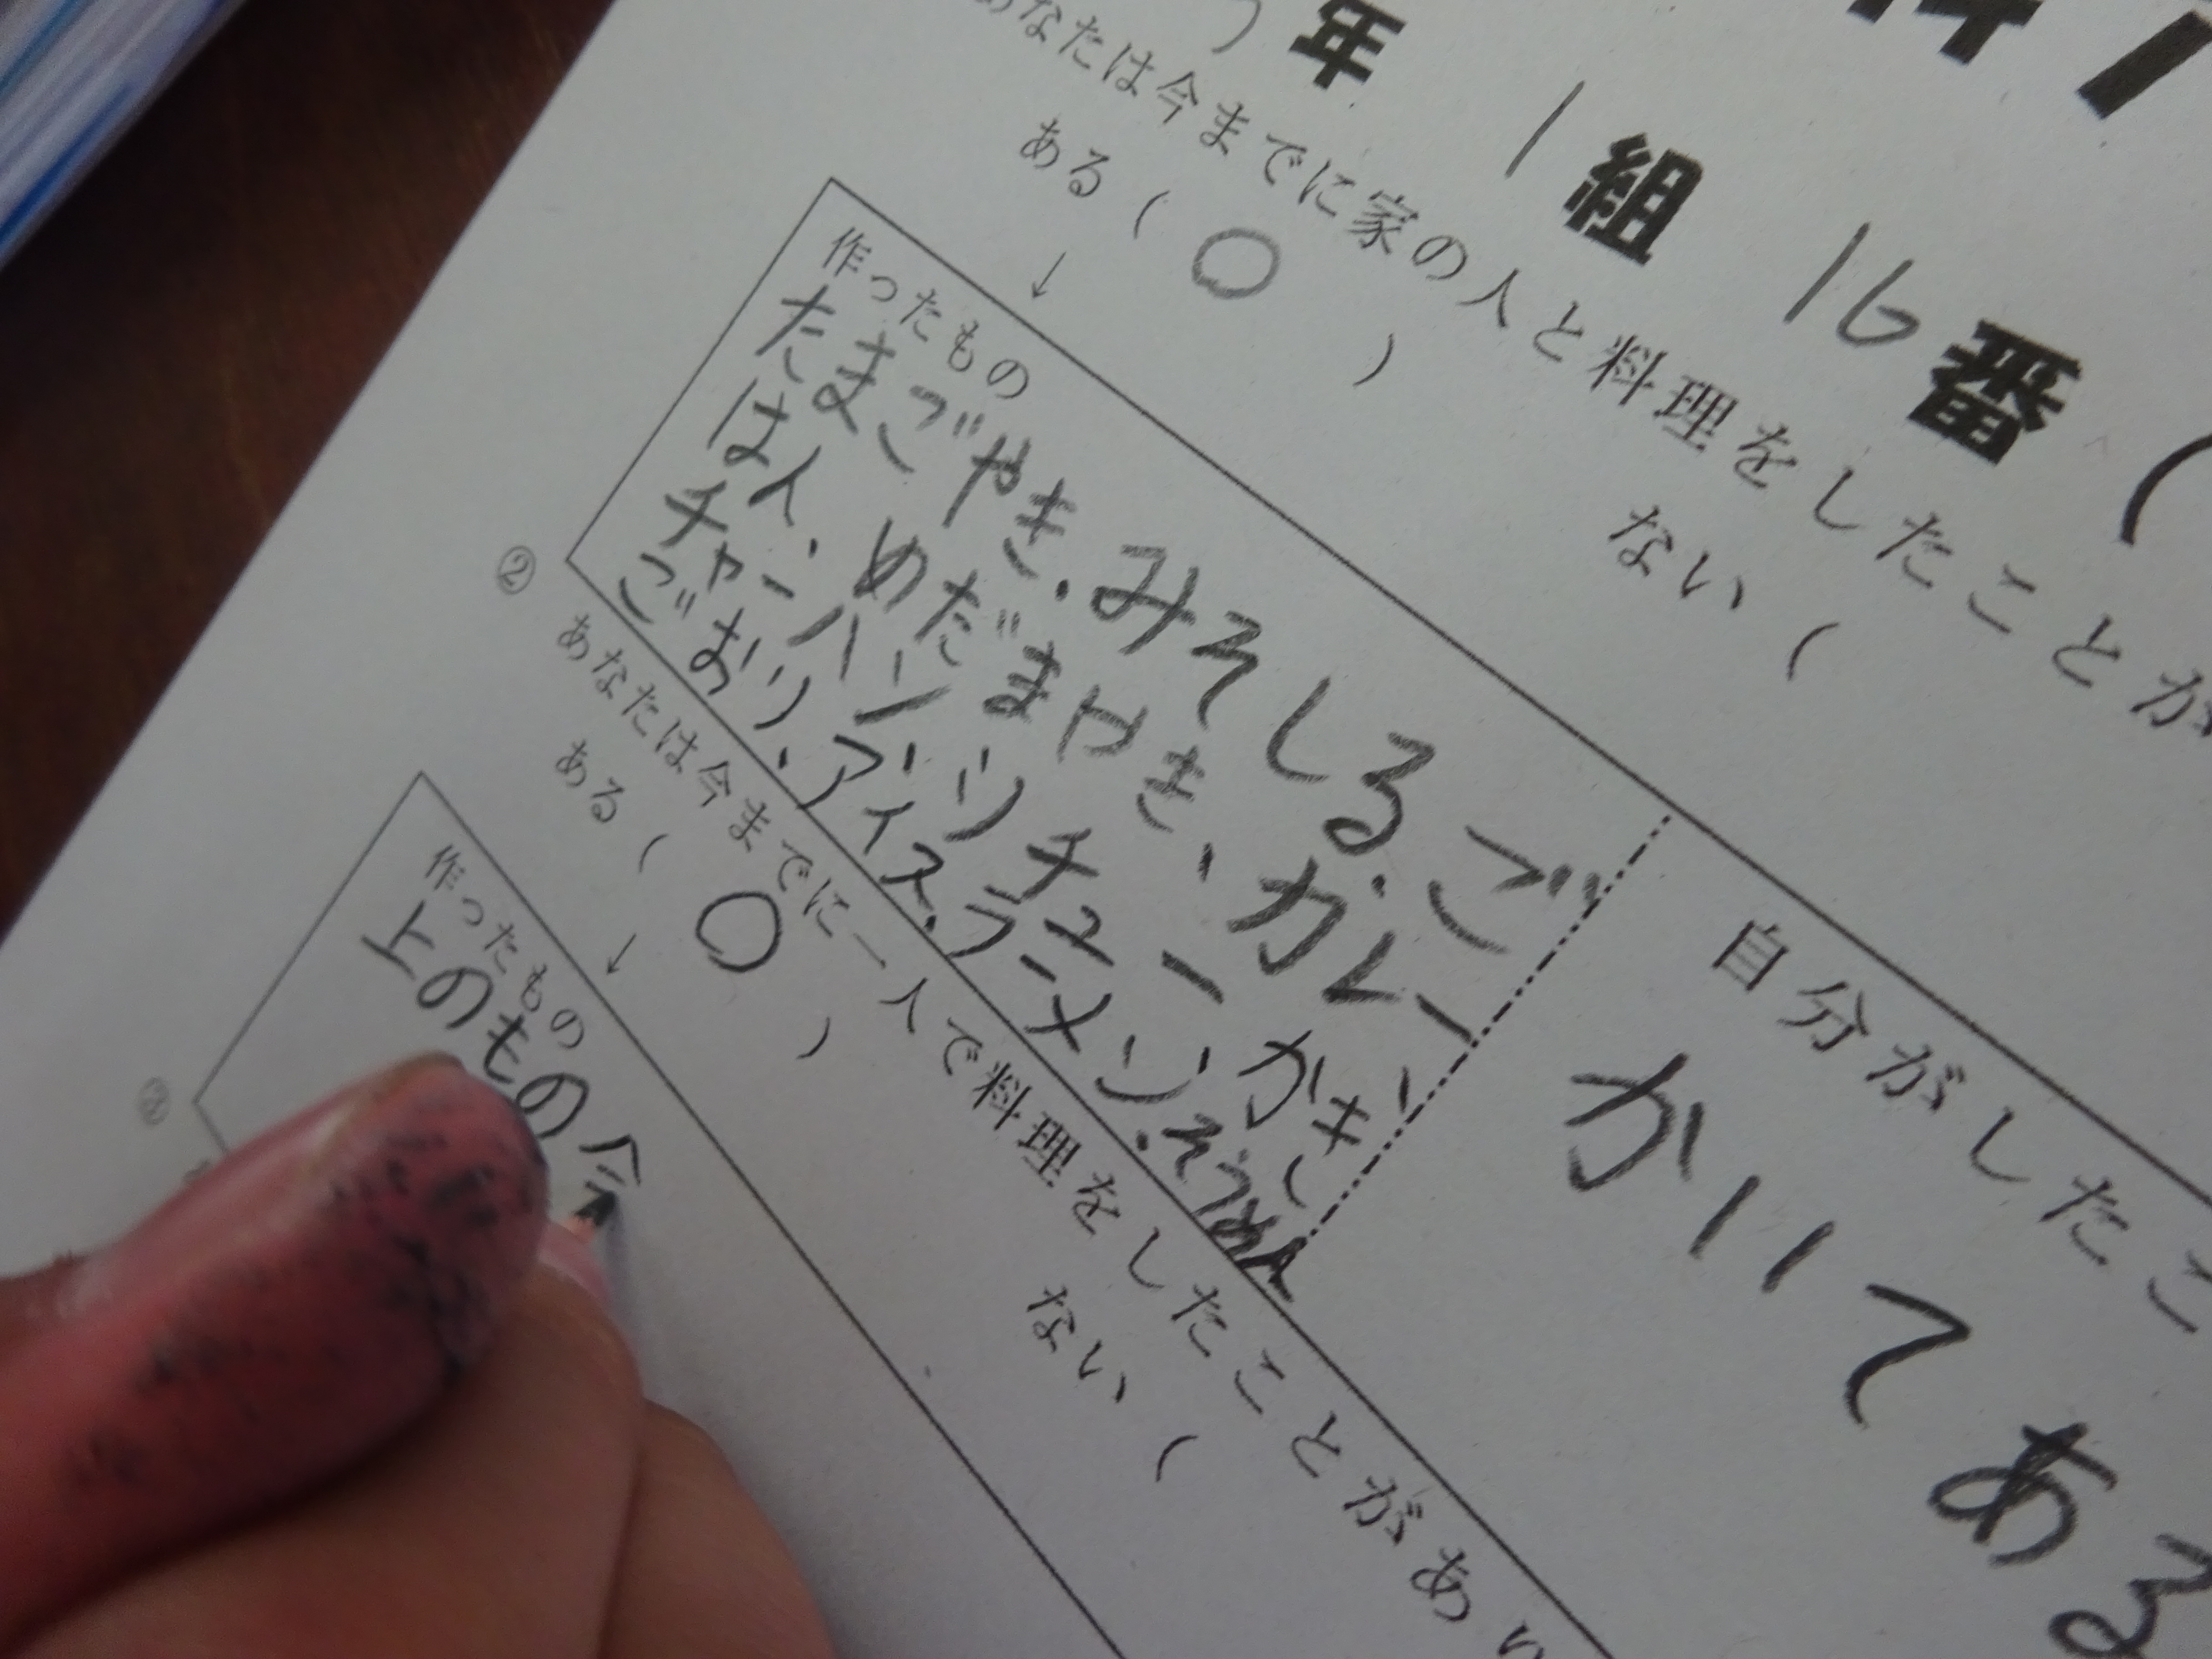 年 1組 16番(
あなたは今までに家の人と料理をしたことが
ある( ○ ) ない(
↓
作ったもの
たまごやき.みそしる.ご
はん、めだまやき、カレー
チャーハン、ブリチュー かき
ごおり.アイス.ラーメン.そうめん
自分がしたこ
かいてある
② あなたは今までに一人で料理をしたことがあり
ある( ○ ) ない(
↓
作ったもの
上のもの